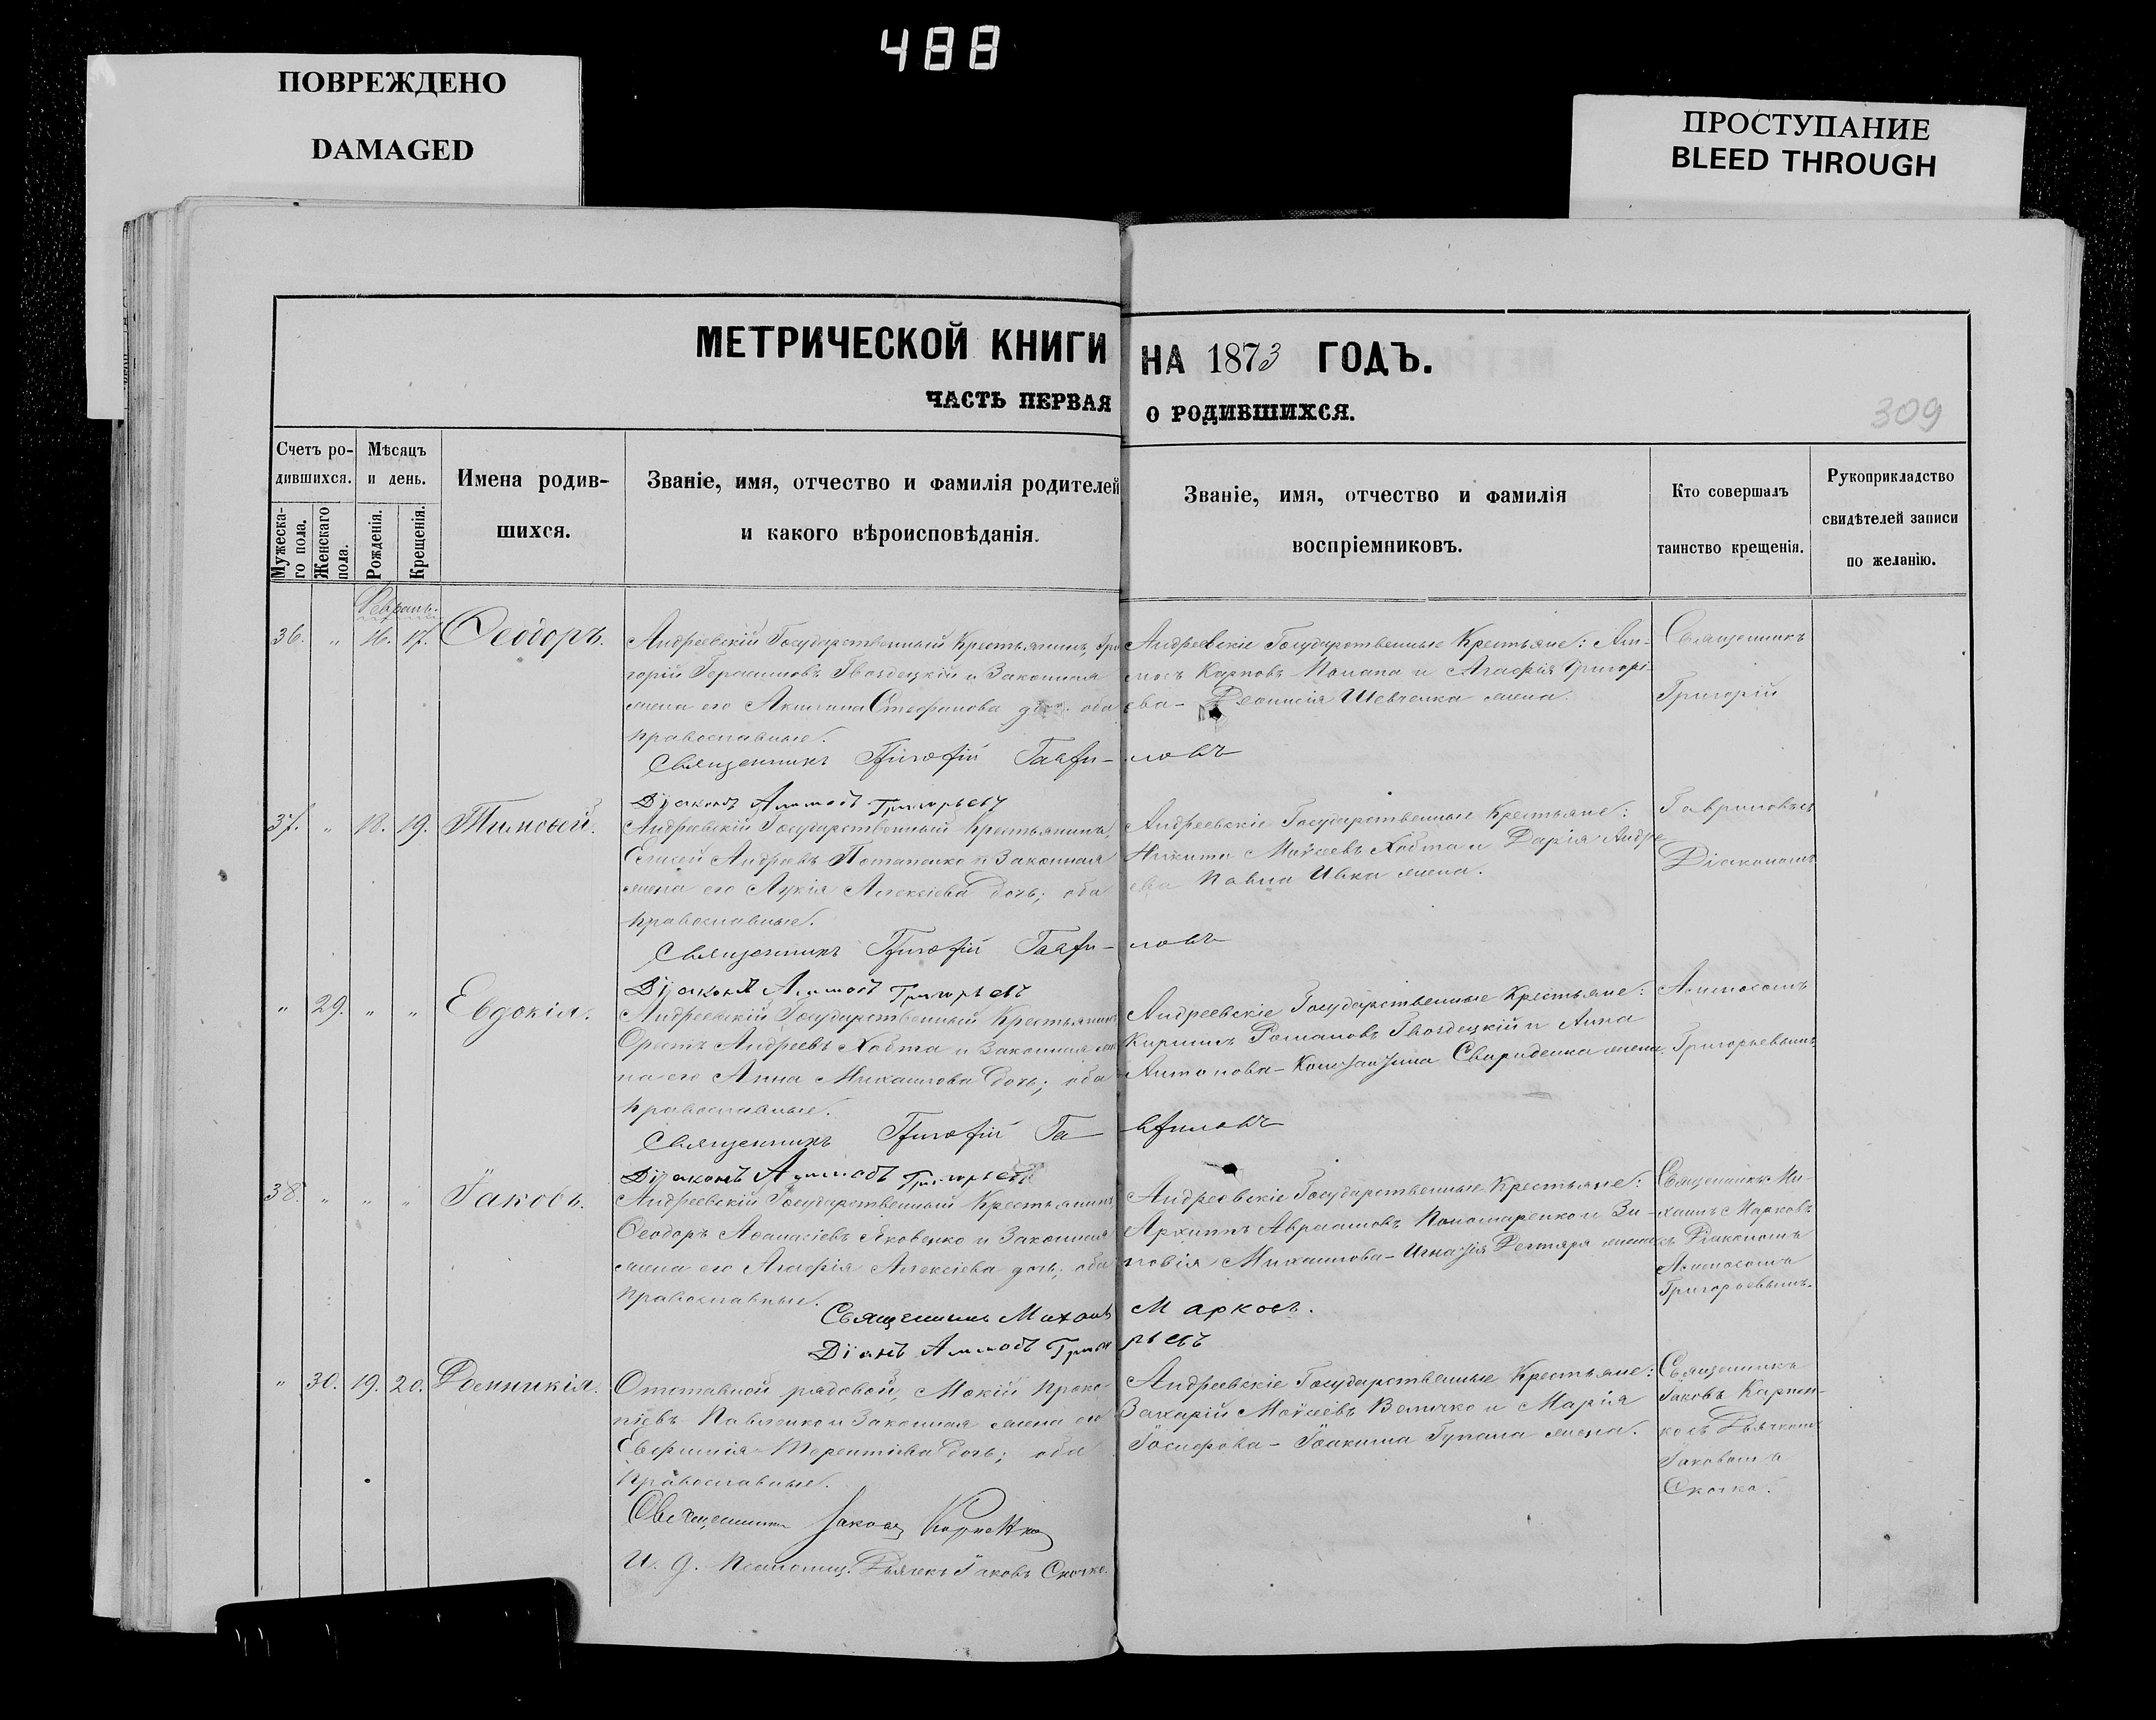 488
ПОВРЕЖДЕНО
DAMAGED
ПРОСТУПАНИЕ
BLEED THROUGH
МЕТРИЧЕСКОЙ КНИГИ НА 1873 ГОДЪ.
ЧАСТЬ ПЕРВАЯ О РОДИВШИХСЯ.
309
Счетъ ро-
дившихся.
Мужеска-
го пола.
Женскаго
пола.
Мѣсяцъ
и день.
Рожденія.
Крещенія.
Имена родив-
шихся.
Званіе, имя, отчество и фамилія родителей
и какого вѣроисповѣданія.
Званіе, имя, отчество и фамилія
воспріемниковъ.
Кто совершалъ
таинство крещенія.
Рукоприкладство
свидѣтелей записи
по желанію.
Февраль.
36. " 16. 17. Ѳеодоръ.
Андреевскій Государственный Крестьянинъ, Гри
горій Герасимовъ Гвоздецкій и Законная
жена его Акилина Стефанова оба
православные.
Священникъ Григорій Гаври-
ловъ
Діаконъ Григорьевъ
Андреевскіе Государственные Крестьяне:
Карповъ и Агафія Григорі-
ева - Шевченка жена.
Священникъ
Григорій
37. " 18. 19. Тимоѳей.
Андреевскій Государственный Крестьянинъ,
Елисей Андреевъ Потапенко и Законная
жена его Лукія Алексіева дочь; оба
православные.
Священникъ Григорій Гаври-
ловъ
Діаконъ Григорьевъ
Андреевскіе Государственные Крестьяне:
Никита Моѵсеевъ Хобта и Дарія Андре
ева Павла Ивка жена.
Гавриловъ съ
Діакономъ
" 29. " " Евдокія.
Андреевскій Государственный Крестьянинъ
Орестъ Андреевъ Хобта и Законная же
на его Анна Михаилова дочь; оба
православные.
Священникъ Григорій Га
вриловъ
Діаконъ Григорьевъ
Андреевскіе Государственные Крестьяне:
Кириллъ Романовъ Гвоздецкій и Анна
Антонова - Константина Свириденка жена.
Григорьевымъ.
38. " " " Іаковъ.
Андреевскій Государственный Крестьянинъ
Ѳеодоръ Аѳанасіевъ Яковенко и Законная
жена его Агафія Алексіева дочь; оба
православные.
Священникъ Михаилъ Марковъ.
Діаконъ
Андреевскіе Государственные Крестьяне:
Архиппъ Авраамовъ Пономаренко и Зи-
новія Михаилова - Игнатія Дегтяря жена
Священникъ Ми-
хаилъ Марковъ
съ Діакономъ
Григорьевымъ.
" 30. 19. 20. Домникія.
Отставной рядовой, Мокій Проко-
піевъ Павленко и Законная жена его
Евфимія Терентіева дочь; оба
православные.
Священникъ Іаковъ
И. д. Псаломщ. Дьячекъ Іаковъ Скочко.
Андреевскіе Государственные Крестьяне:
Захарій Моѵсеевъ Величко и Марія
Іосифова - Іоакима Гупала жена.
Священникъ
Іаковъ Карпен-
ко съ Дьячкомъ
Іаковомъ
Скочко.